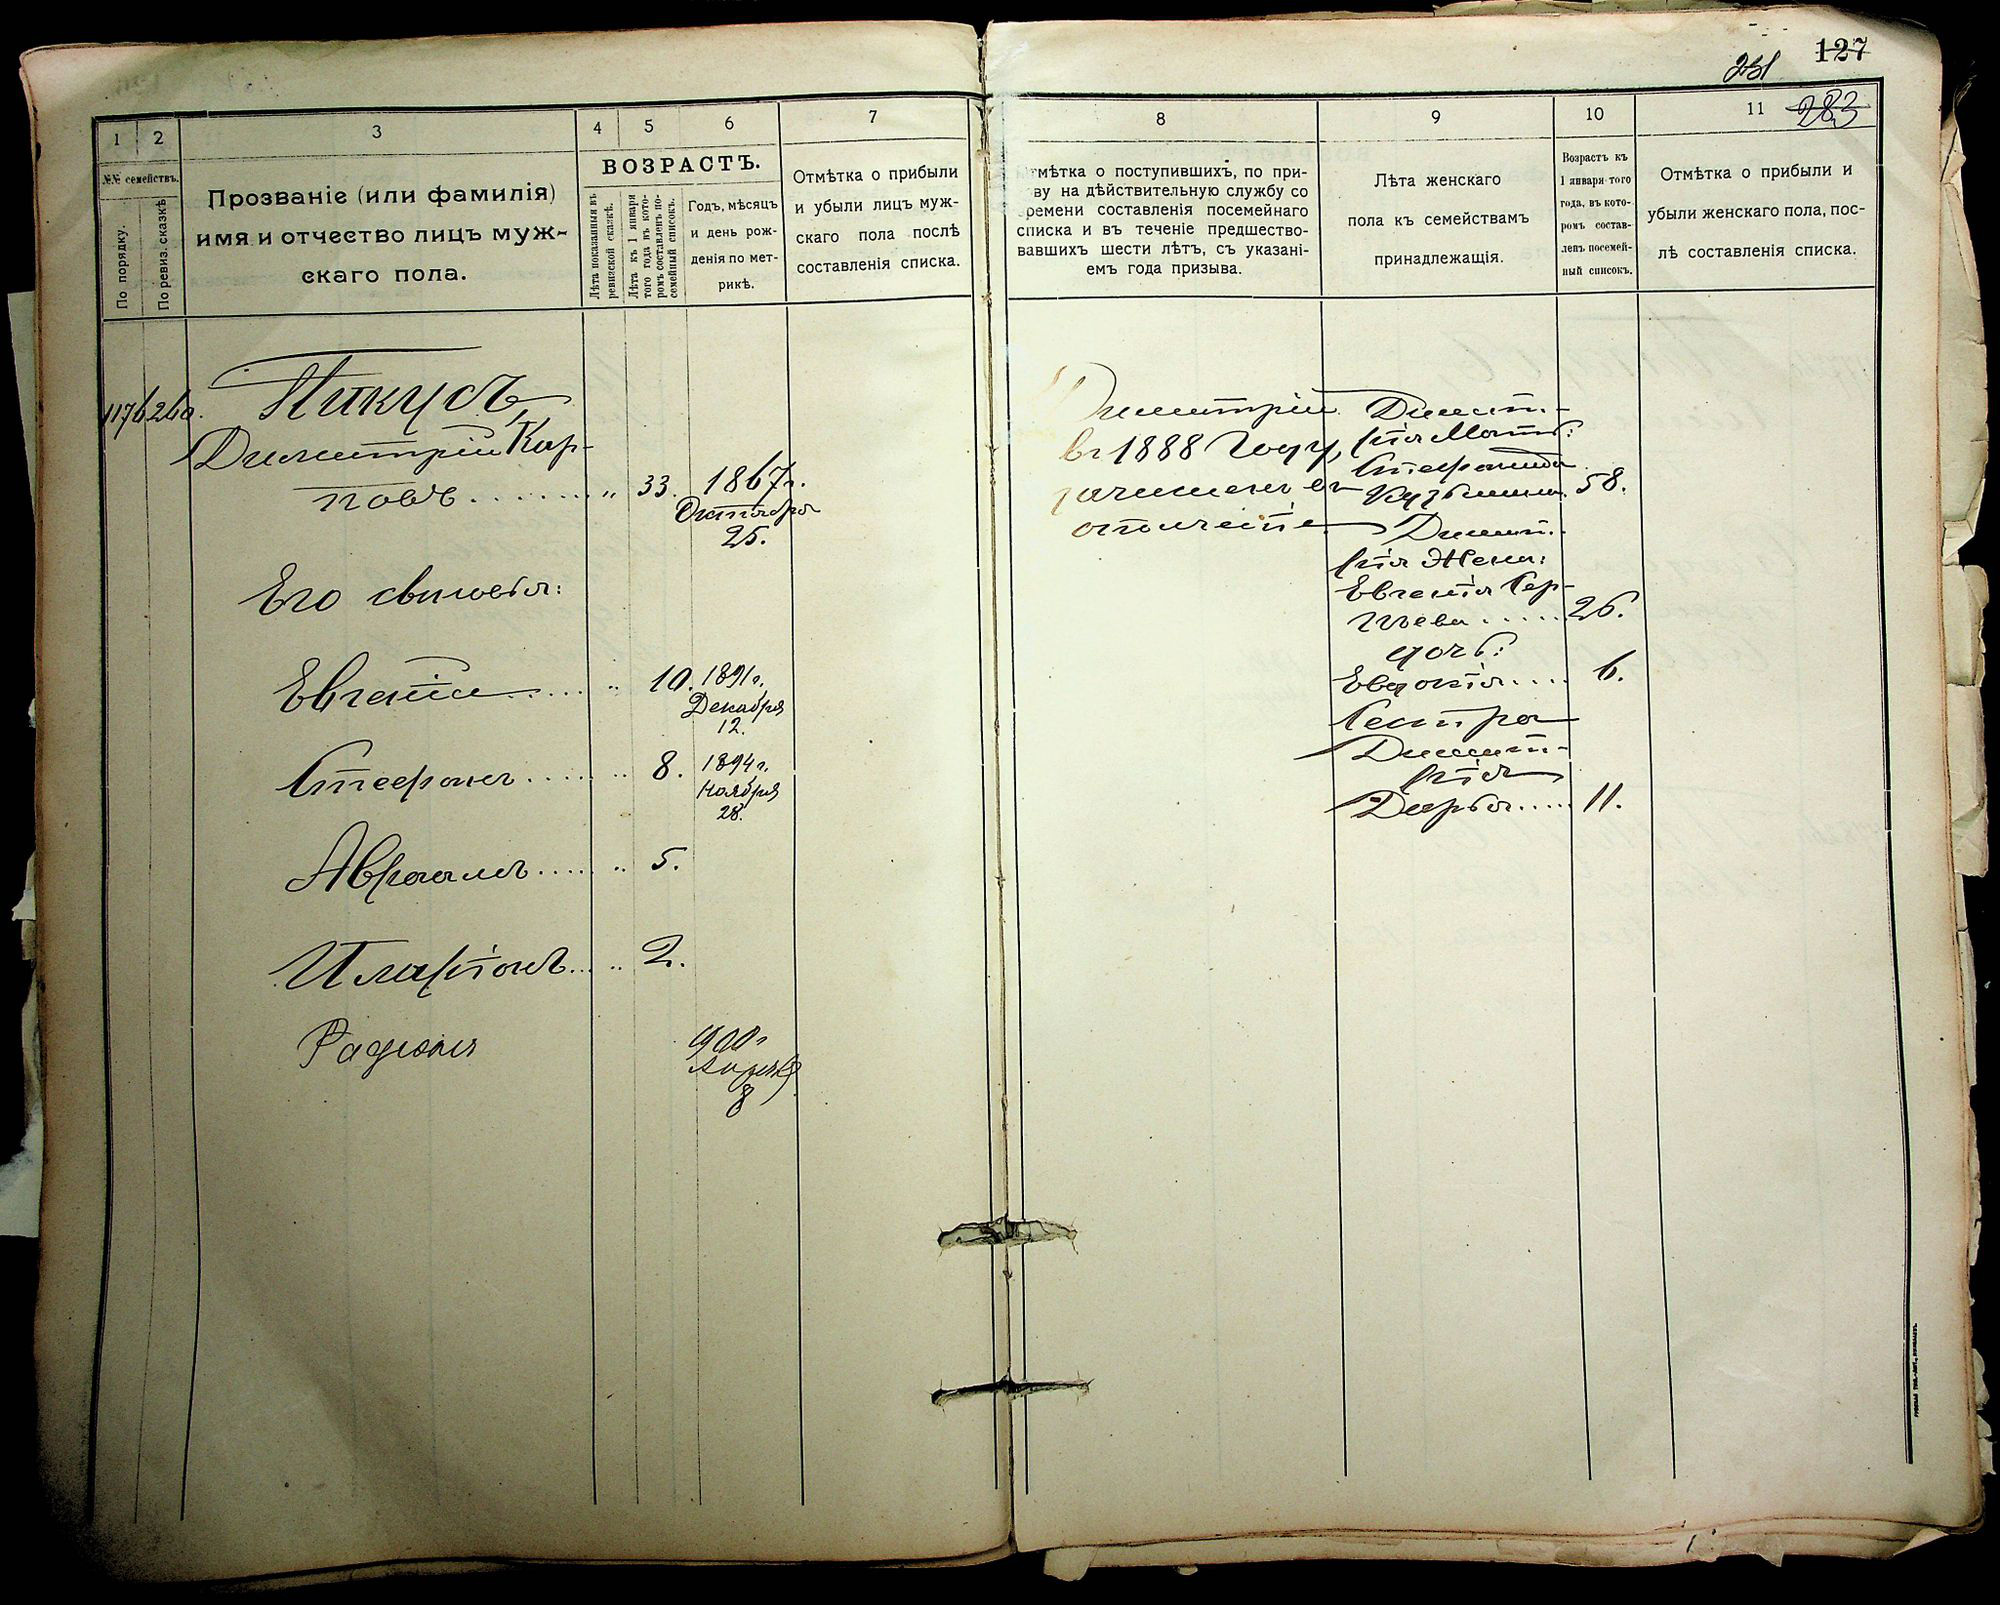 231
127
283
1
2
3
4
5
6
7
№№ семействъ.
По порядку.
По ревиз. сказкѣ
Прозваніе (или фамилія)
имя и отчество лицъ муж-
скаго пола.
ВОЗРАСТЪ.
Лѣта показанныя въ
ревизской сказкѣ.
Лѣта къ 1 января
того года въ кото-
ромъ составленъ по-
семейный списокъ.
Годъ, мѣсяцъ
и день рож-
денія по мет-
рикѣ.
Отмѣтка о прибыли
и убыли лицъ муж-
скаго пола послѣ
составленія списка.
1176
240.
Пикусъ,
Димитрій Кар-
повъ . . . . . . . „ 33. 1867 г.
Октября
25.
Его сыновья:
Евгеній . . . . . „ 10. 1891 г.
Декабря
12.
Стефанъ . . . . . „ 8. 1894 г.
Ноября
28.
Авраамъ . . . . . „ 5.
Иларіонъ . . . „ 2.
Радіонъ 900 г
Апреля
8
8
9
10
11
мѣтка о поступившихъ, по при-
ву на дѣйствительную службу со
ремени составленія посемейнаго
списка и въ теченіе предшество-
вавшихъ шести лѣтъ, съ указані-
емъ года призыва.
Лѣта женскаго
пола къ семействамъ
принадлежащія.
Возрастъ къ
1 января того
года, въ кото-
ромъ состав-
ленъ посемей-
ный списокъ.
Отмѣтка о прибыли и
убыли женскаго пола, пос-
лѣ составленія списка.
Димитрій
въ 1888 году,
зачисленъ въ
ополченіе
Димит-
рія Мать:
Стефанида
Кузьмина. 58.
Димит-
рія Жена:
Евгенія Сер-
гѣева . . . . . 26.
дочь:
Евдокія . . . . 6.
Сестра
Димит-
рія
Дарья . . . . . 11.